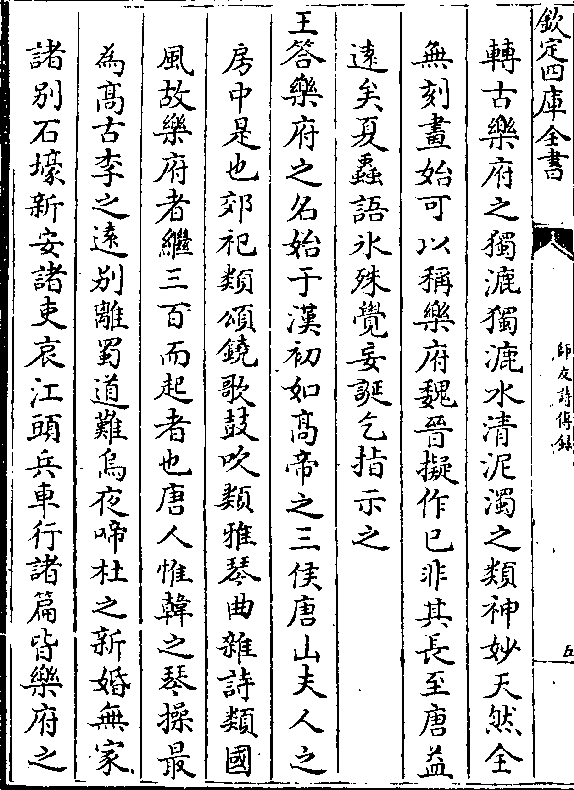 欽定四庫全書
師友詩傳錄
五
轉古樂府之獨漉獨漉水清泥濁之類神妙天然全
無刻畫始可以稱樂府魏晉擬作已非其長至唐益
逺矣夏蟲語氷殊覺妄誕乞指示之
王答樂府之名始于漢初如髙帝之三侯唐山夫人之
房中是也郊祀類頌鐃歌鼓吹類雅琴曲雜詩類國
風故樂府者繼三百而起者也唐人惟韓之琴操最
為髙古李之逺别離蜀道難烏夜啼杜之新婚無家
諸别石壕新安諸吏哀江頭兵車行諸篇皆樂府之